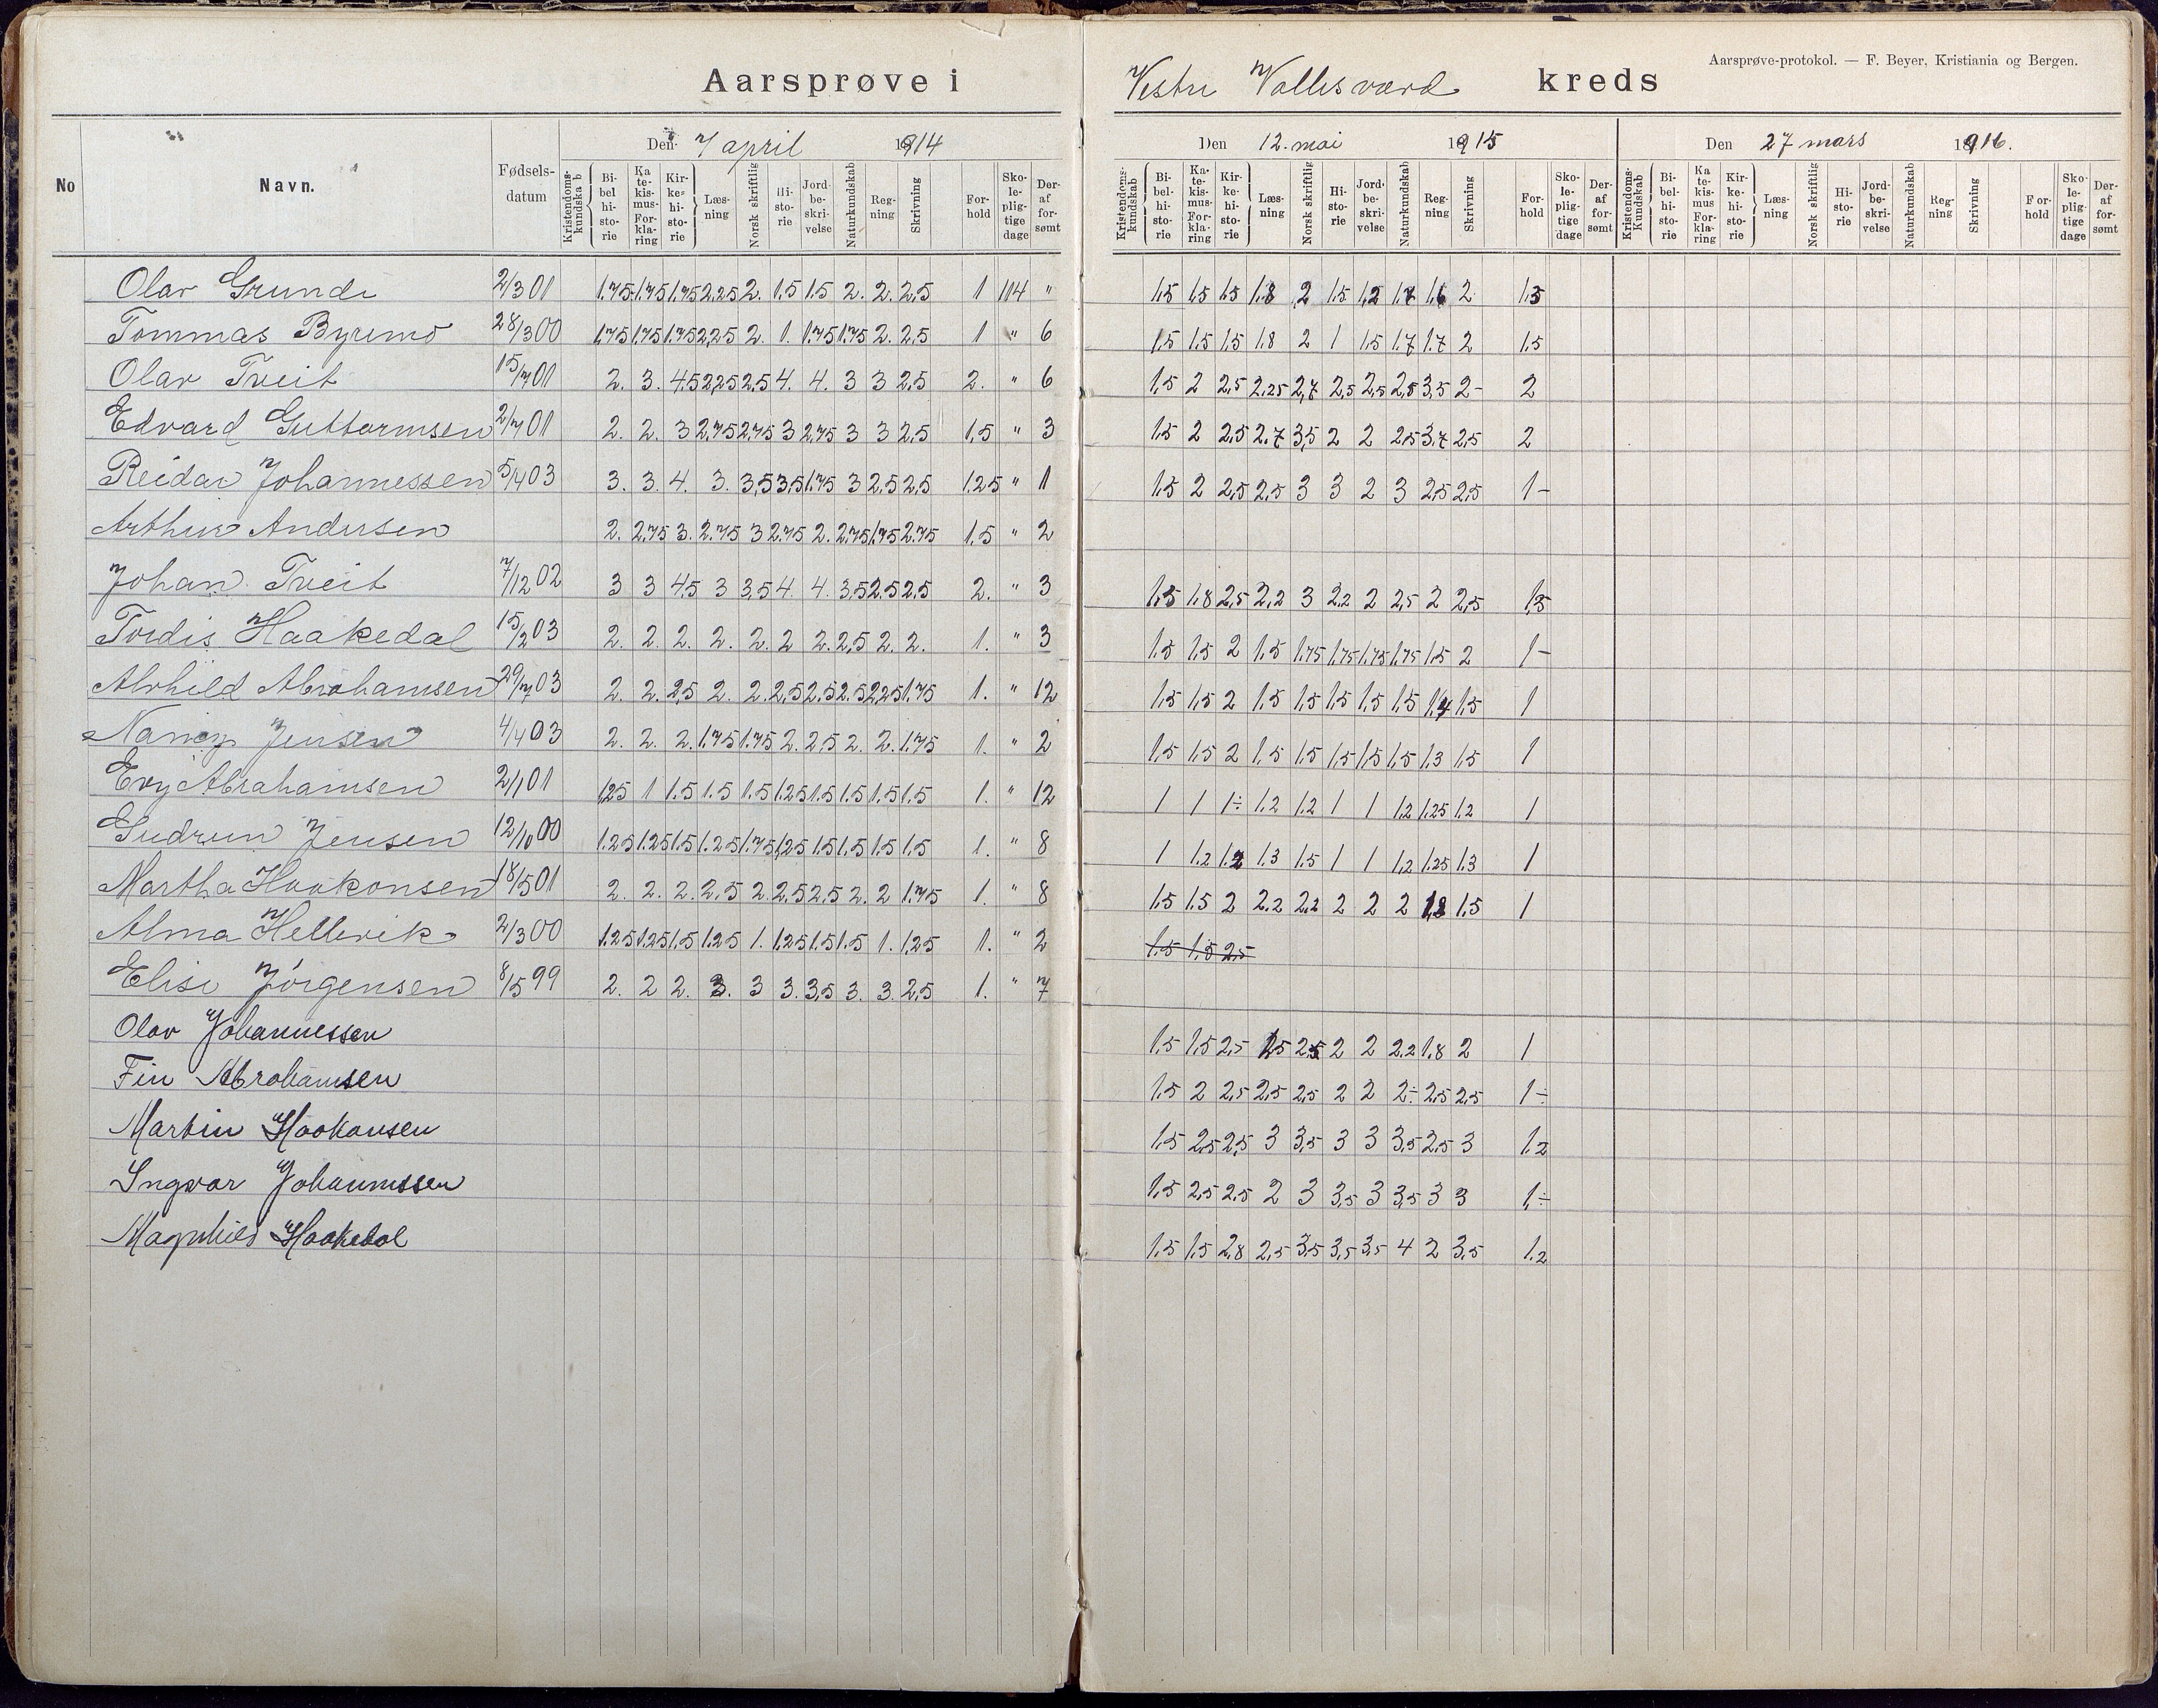 Aarsprøve-protokol. — F. Beyer, Kristiania og Bergen.
Aarsprøve i Vestre Vallesværd kreds
No Navn. Fødsels-datum Den 7 april 1914 Den 12. mai 1915 Den 27 mars 1916.
Kristendoms-kundskab Bi-bel-hi-sto-rie Ka-te-kis-mus- For-kla-ring Kir-ke-hi-sto-rie Læs-ning Norsk skriftlig Hi-sto-rie Jord-be-skri-velse Naturkundskab Reg-ning Skrivning For-hold Sko-le-plig-tige dage Der-af for-sømt
Kristendoms-kundskab Bi-bel-hi-sto-rie Ka-te-kis-mus- For-kla-ring Kir-ke-hi-sto-rie Læs-ning Norsk skriftlig Hi-sto-rie Jord-be-skri-velse Naturkundskab Reg-ning Skrivning For-hold Sko-le-plig-tige dage Der-af for-sømt
Kristendoms-Kundskab Bi-bel-hi-sto-rie Ka-te-kis-mus For-kla-ring Kir-ke-hi-sto-rie Læs-ning Norsk skriftlig Hi-sto-rie Jord-be-skri-velse Naturkundskab Reg-ning Skrivning For-hold Sko-le-plig-tige dage Der-af for-sømt
Olav Grundi 2/3 01 1.75 1.75 1.75 2,25 2. 1.5 1.5 2. 2. 2,5 1 114 " 1.5 1.5 1.5 1.8 2 1.5 1,2 1.7 1.6 2 1.5
Tommas Byremo 28/3 00 1,75 1.75 1.75 2,25 2. 1. 1.75 1.75 2. 2.5 1 " 6 1.5 1.5 1.5 1.8 2 1 1.5 1.7 1.7 2 1.5
Olav Tveit 15/7 01 2. 3. 4.5 2,25 2.5 4. 4. 3 3 2.5 2. " 6 1.5 2 2,5 2.25 2,7 2,5 2,5 2,8 3,5 2- 2
Edvard Guttormsen 2/7 01 2. 2. 3 2,75 2,75 3 2,75 3 3 2,5 1,5 " 3 1.5 2 2,5 2.7 3,5 2 2 2,5 3,7 2,5 2
Reidar Johannessen 5/4 03 3. 3. 4. 3. 3,5 3,5 1.75 3 2.5 2,5 1.25 " 1 1.5 2 2,5 2,5 3 3 2 3 2,5 2,5 1-
Arthur Andersen 2. 2,75 3. 2.75 3 2.75 2. 2.75 1.75 2.75 1.5 " 2
Johan Tveit 7/12 02 3 3 4.5 3 3,5 4. 4. 3,5 2.5 2.5 2. " 3 1.5 1.8 2,5 2,2 3 2,2 2 2,5 2 2,5 1,5
Tordis Haakedal 15/2 03 2. 2. 2. 2. 2. 2 2. 2,5 2. 2. 1. " 3 1.5 1.5 2 1.5 1.75 1.75 1.75 1.75 1.5 2 1-
Alvhild Abrahamsen 29/7 03 2. 2. 2,5 2. 2. 2,5 2.5 2.5 2,25 1.75 1. " 12 1.5 1.5 2 1.5 1.5 1.5 1.5 1.5 1.4 1.5 1
Nancy Jensen 4/4 03 2. 2. 2. 1.75 1.75 2. 2,5 2. 2. 1.75 1. " 2 1.5 1.5 2 1.5 1.5 1.5 1.5 1.5 1.3 1.5 1
Evy Abrahamsen 2/1 01 1,25 1 1.5 1.5 1.5 1.25 1.5 1.5 1.5 1.5 1. " 12 1 1 1÷ 1.2 1.2 1 1 1.2 1.25 1.2 1
Gudrun Jensen 12/10 00 1.25 1.25 1.5 1.25 1.75 1,25 1.5 1.5 1.5 1.5 1. " 8 1 1.2 1.2 1.3 1.5 1 1 1,2 1.25 1.3 1
Martha Haakonsen 18/5 01 2. 2. 2. 2,5 2. 2.5 2,5 2. 2 1.75 1. " 8 1.5 1.5 2 2.2 2,2 2 2 2 1.8 1.5 1
Alma Hellevik 2/3 00 1.25 1.25 1.5 1.25 1. 1.25 1.5 1.5 1. 1.25 1. " 2 1.5 1.5 2,5
Elise Jörgensen 8/5 99 2. 2 2. 3. 3 3. 3,5 3. 3. 2,5 1. " 7
Olav Johannessen 1.5 1.5 2,5 1.5 2,5 2 2 2.2 1.8 2 1
Fin Abrahamsen 1.5 2 2,5 2,5 2,5 2 2 2÷ 2,5 2,5 1÷
Martin Haakonsen 1.5 2,5 2,5 3 3,5 3 3 3,5 2,5 3 1.2
Ingvar Johannessen 1.5 2,5 2,5 2 3 3,5 3 3,5 3 3 1÷
Magnhild Haakedal 1.5 1.5 2,8 2,5 3,5 3,5 3,5 4 2 3,5 1.2